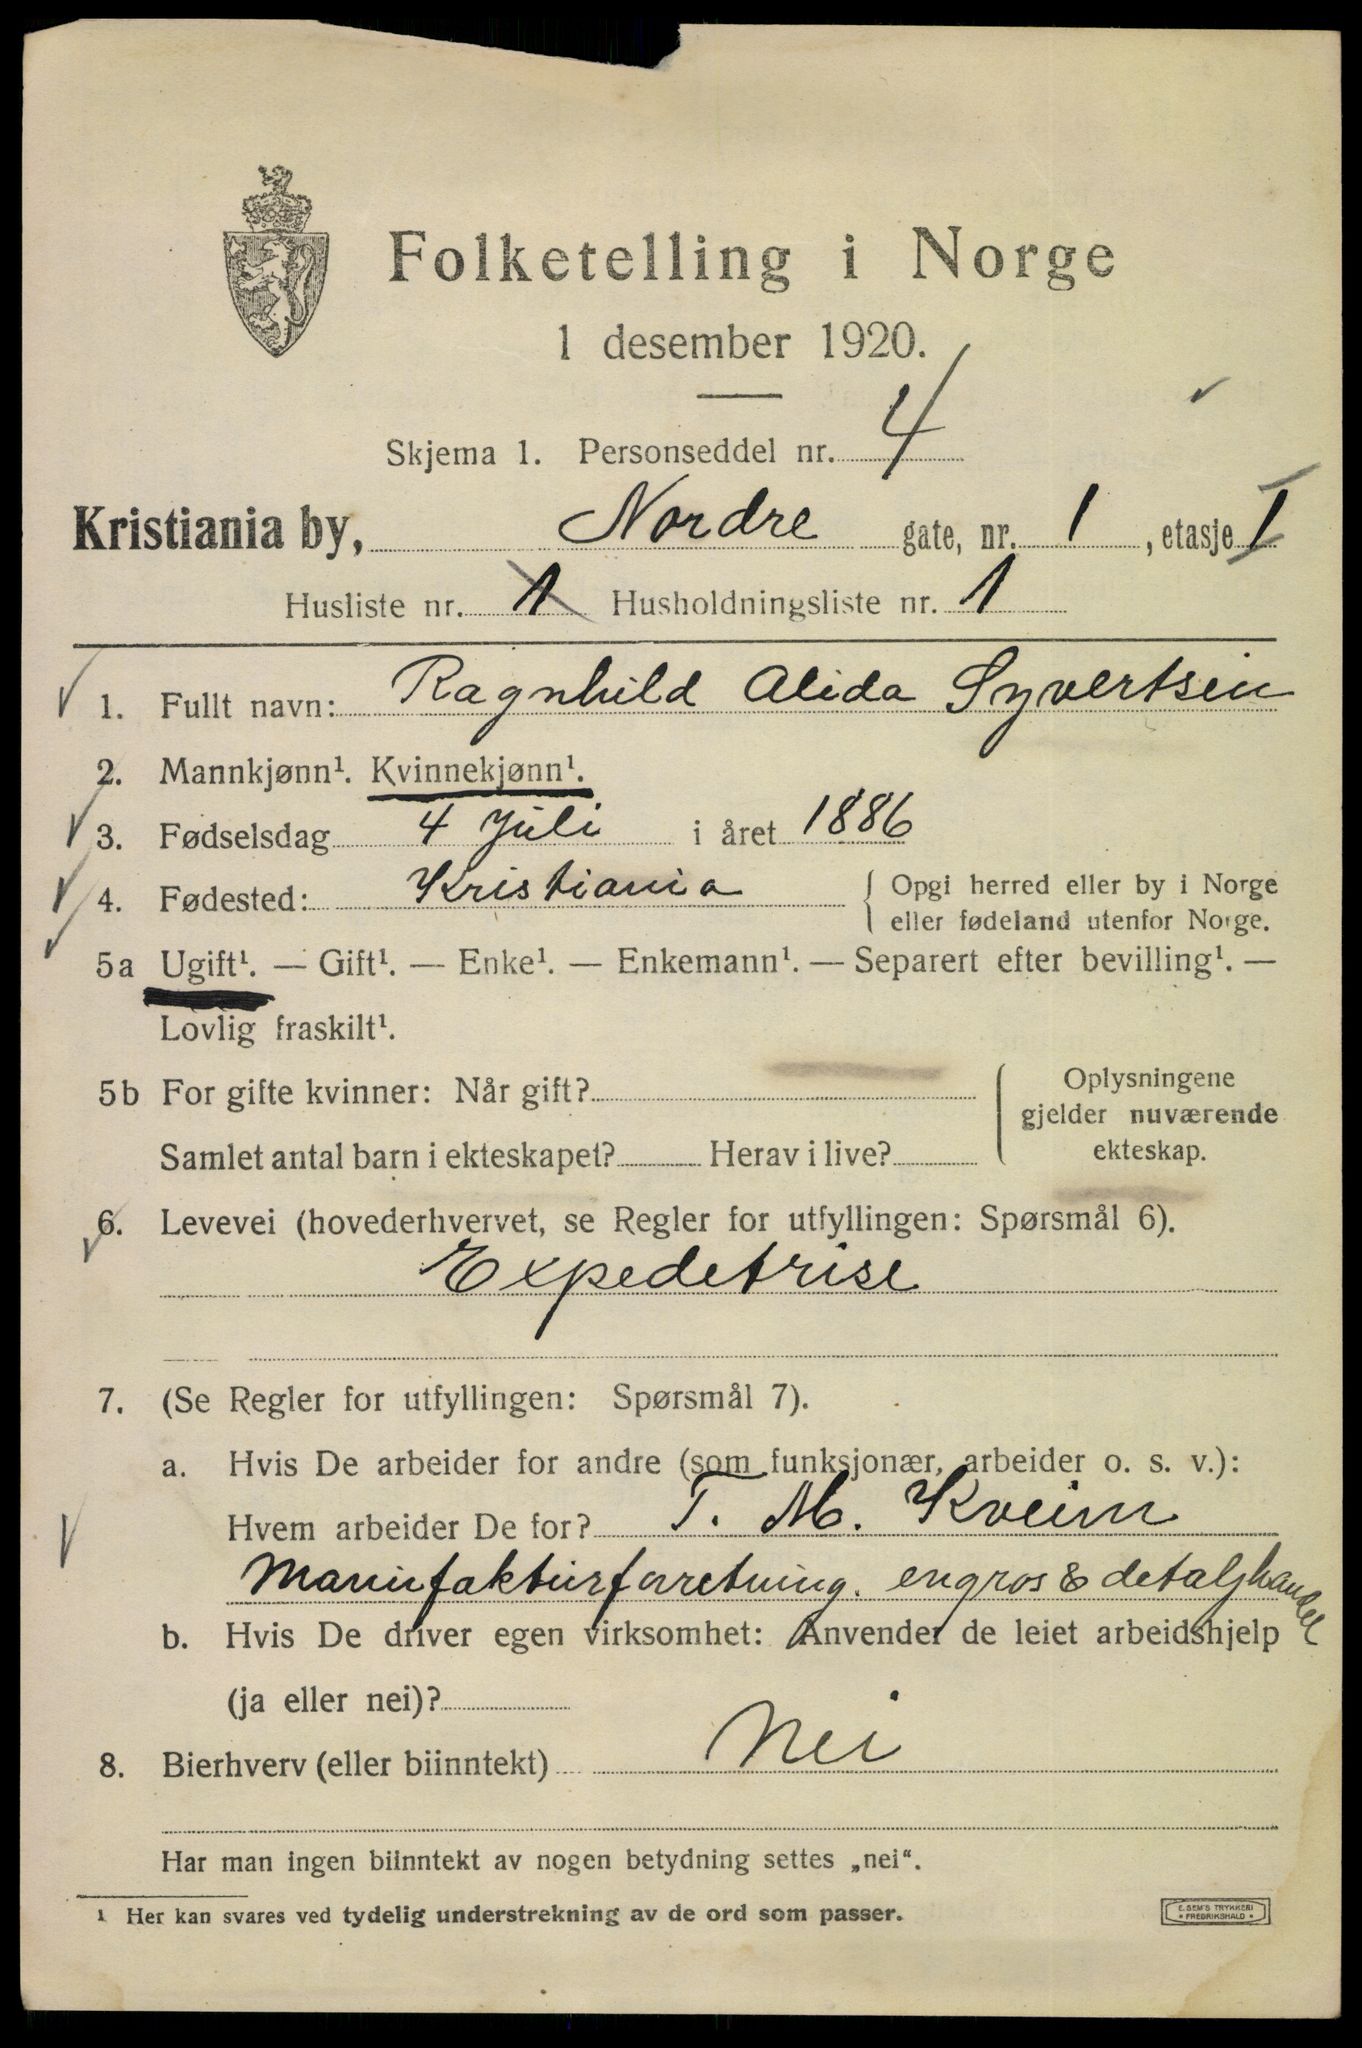 Folketelling i Norge
1 desember 1920.
Skjema 1. Personseddel nr. 4
Kristiania by, Nordre gate, nr. 1, etasje I
Husliste nr. 1 Husholdningsliste nr. 1
1. Fullt navn: Ragnhild Alida Syvertsen
2. Mannkjønn¹. Kvinnekjønn¹.
3. Fødselsdag 4 Juli i året 1886
4. Fødested: Kristiania { Opgi herred eller by i Norge
eller fødeland utenfor Norge.
5a Ugift¹. — Gift¹. — Enke¹. — Enkemann¹. — Separert efter bevilling¹. —
Lovlig fraskilt¹.
5b For gifte kvinner: Når gift?
Samlet antal barn i ekteskapet? Herav i live?
Oplysningene
gjelder nuværende
ekteskap.
6. Levevei (hovederhvervet, se Regler for utfyllingen: Spørsmål 6).
Expedetrise
7. (Se Regler for utfyllingen: Spørsmål 7).
a. Hvis De arbeider for andre (som funksjonær, arbeider o. s. v.):
Hvem arbeider De for? T. M. Kveim
Manufakturforretning. engros & detaljhandel
b. Hvis De driver egen virksomhet: Anvender de leiet arbeidshjelp
(ja eller nei)?
8. Bierhverv (eller biinntekt) Nei
Har man ingen biinntekt av nogen betydning settes „nei".
¹ Her kan svares ved tydelig understrekning av de ord som passer.
E. SEM'S TRYKKERI
• FREDRIKSHALD •